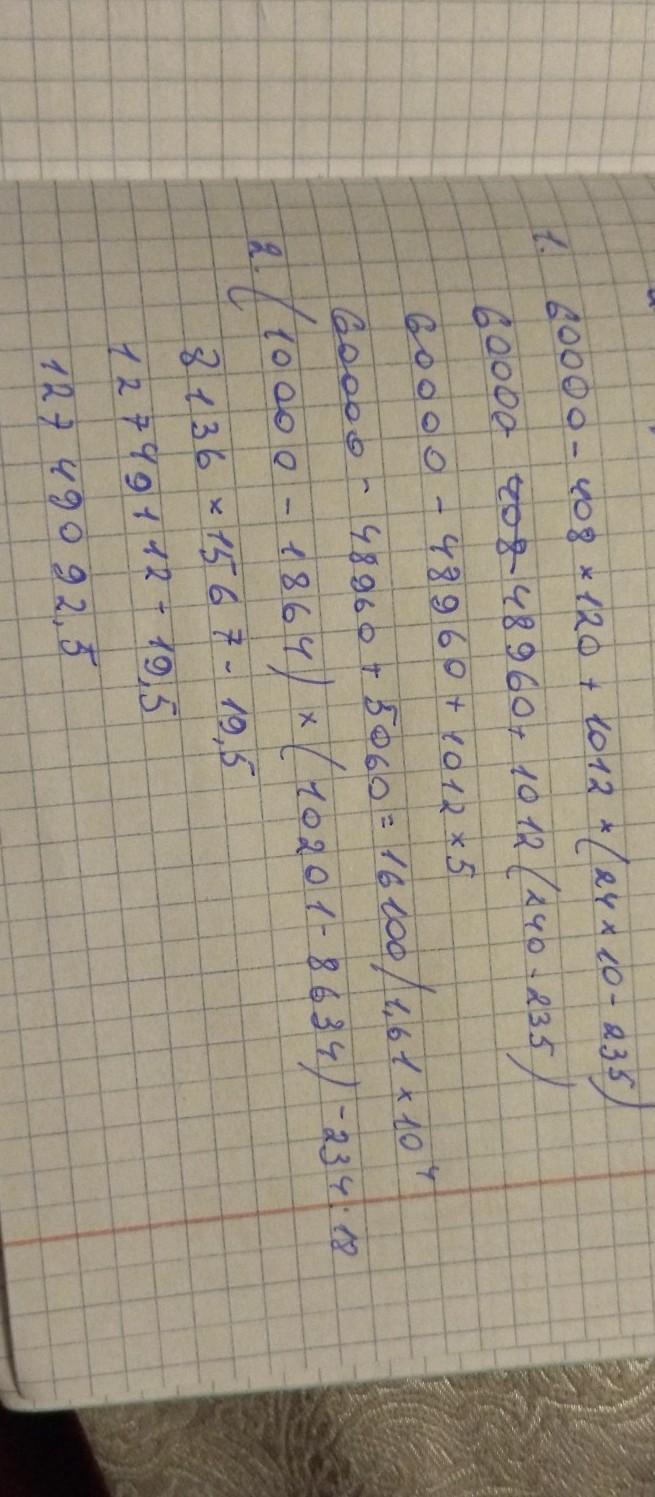 1. 60000 - 408 × 120 + 1012 × (24 × 10 - 235)
60000 - 48960 + 1012 (240 - 235)
60000 - 48960 + 1012 × 5
60000 - 48960 + 5060 = 16100 / 1,61 × 10⁴
2. (10000 - 1864) × (10201 - 8634) - 234 : 12
8136 × 1567 - 19,5
12749112 - 19,5
12749092,5